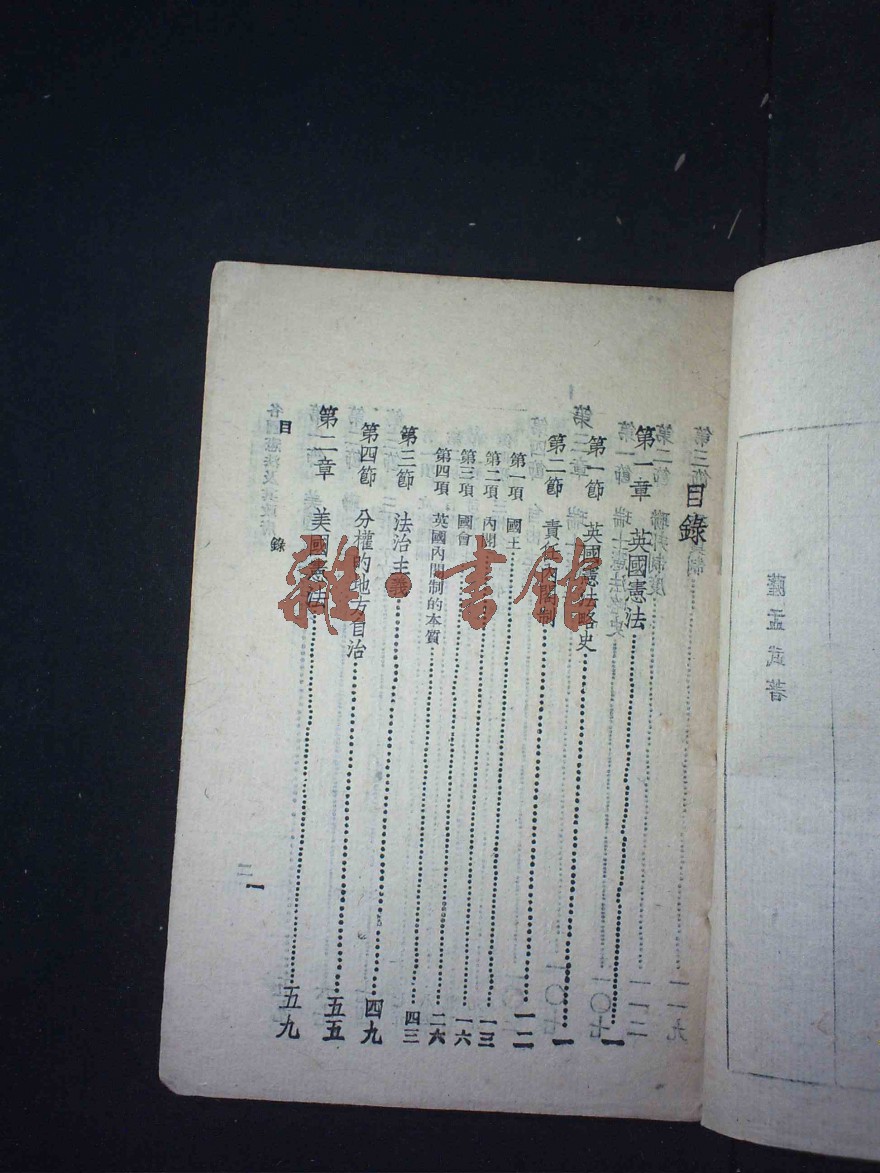 薩孟武著
目錄
第一章 英國憲法 一
第一節 英國憲法略史 一
第二節 責任內閣制 一二
第一項 國王 一三
第二項 內閣 一六
第三項 國會 二六
第四項 英國內閣制的本質 四三
第三節 法治主義 四九
第四節 分權的地方自治 五五
第二章 美國憲法 五九
目錄 一
雜·書館